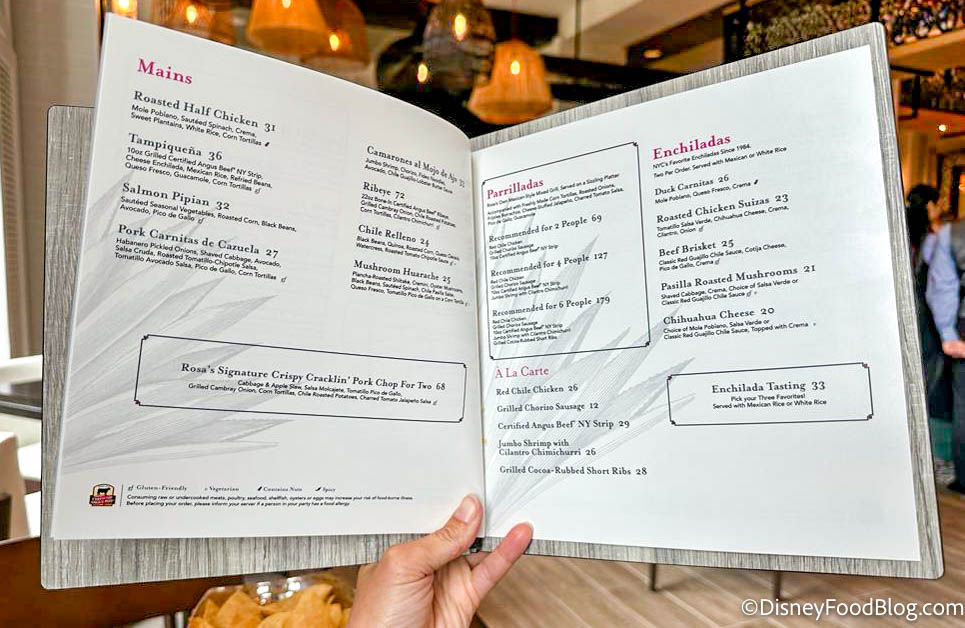 Mains
Roasted Half Chicken 31
Mole Poblano, Sautéed Spinach, Crema,
Sweet Plantains, White Rice, Corn Tortillas
Tampiqueña 36
10oz Grilled Certified Angus Beef® NY Strip,
Cheese Enchilada, Mexican Rice, Refried Beans,
Queso Fresco, Guacamole, Corn Tortillas gf
Salmon Pipian 32
Sautéed Seasonal Vegetables, Roasted Corn, Black Beans,
Avocado, Pico de Gallo gf
Pork Carnitas de Cazuela 27
Habanero Pickled Onions, Shaved Cabbage, Avocado,
Salsa Cruda, Roasted Tomatillo-Chipotle Salsa,
Tomatillo Avocado Salsa, Pico de Gallo, Corn Tortillas gf
Camarones al Mojo de Ajo
Jumbo Shrimp, Chorizo, Fideo Noodles,
Avocado, Chile Guajillo-Lobster Butter Sauce
Ribeye 72
22oz Bone-In Certified Angus Beef® Ribeye,
Grilled Cambray Onion, Chile Roasted Potatoes,
Corn Tortillas, Cilantro Chimichurri gf
Chile Relleno 24
Black Beans, Quinoa, Roasted Corn, Queso Oaxaca,
Watercress, Roasted Tomato Chipotle Sauce
Mushroom Huarache 25
Plancha-Roasted Shiitake, Cremini, Oyster Mushrooms,
Black Beans, Sautéed Spinach, Chile Pasilla Salsa,
Queso Fresco, Tomatillo Pico de Gallo on a Corn
Rosa's Signature Crispy Cracklin' Pork Chop For Two 68
Cabbage & Apple Slaw, Salsa Molcajete, Tomatillo Pico de Gallo,
Grilled Cambray Onion, Corn Tortillas, Chile Roasted Potatoes, Charred Tomato Jalapeño Salsa gf
gf Gluten-Friendly v Vegetarian Contains Nuts Spicy
Consuming raw or undercooked meats, poultry, seafood, shellfish, oysters or eggs may increase your risk of food-borne illness.
Before placing your order, please inform your server if a person in your party has a food allergy.
Parrilladas
Rosa's Own Mexican Style Mixed Grill, Served on a Sizzling Platter
Accompanied with Freshly Made Corn Tortillas, Roasted Onions,
Frijoles Borrachos, Cheese Stuffed Jalapeño, Charred Tomato Salsa,
Pico de Gallo, Guacamole
Recommended for 2 People 69
Red Chile Chicken
Grilled Chorizo Sausage
10oz Certified Angus Beef® NY Strip
Recommended for 4 People 127
Red Chile Chicken
Grilled Chorizo Sausage
10oz Certified Angus Beef® NY Strip
Jumbo Shrimp with Cilantro Chimichurri
Recommended for 6 People 179
Red Chile Chicken
Grilled Chorizo Sausage
10oz Certified Angus Beef® NY Strip
Jumbo Shrimp with Cilantro Chimichurri
Grilled Cocoa Rubbed Short Ribs
À La Carte
Red Chile Chicken 26
Grilled Chorizo Sausage 12
Certified Angus Beef® NY Strip 29
Jumbo Shrimp with
Cilantro Chimichurri 26
Grilled Cocoa-Rubbed Short Ribs 28
Enchiladas
NYC's Favorite Enchiladas Since 1984.
Two Per Order. Served with Mexican or White Rice
Duck Carnitas 26
Mole Poblano, Queso Fresco, Crema
Roasted Chicken Suizas 23
Tomatillo Salsa Verde, Chihuahua Cheese, Crema,
Cilantro, Onion gf
Beef Brisket 25
Classic Red Guajillo Chile Sauce, Cotija Cheese,
Pico de Gallo, Crema gf
Pasilla Roasted Mushrooms 21
Shaved Cabbage, Crema, Choice of Salsa Verde or
Classic Red Guajillo Chile Sauce gf v
Chihuahua Cheese 20
Choice of Mole Poblano, Salsa Verde or
Classic Red Guajillo Chile Sauce, Topped with Crema v
Enchilada Tasting 33
Pick your Three Favorites!
Served with Mexican Rice or White Rice
©DisneyFoodBlog.com